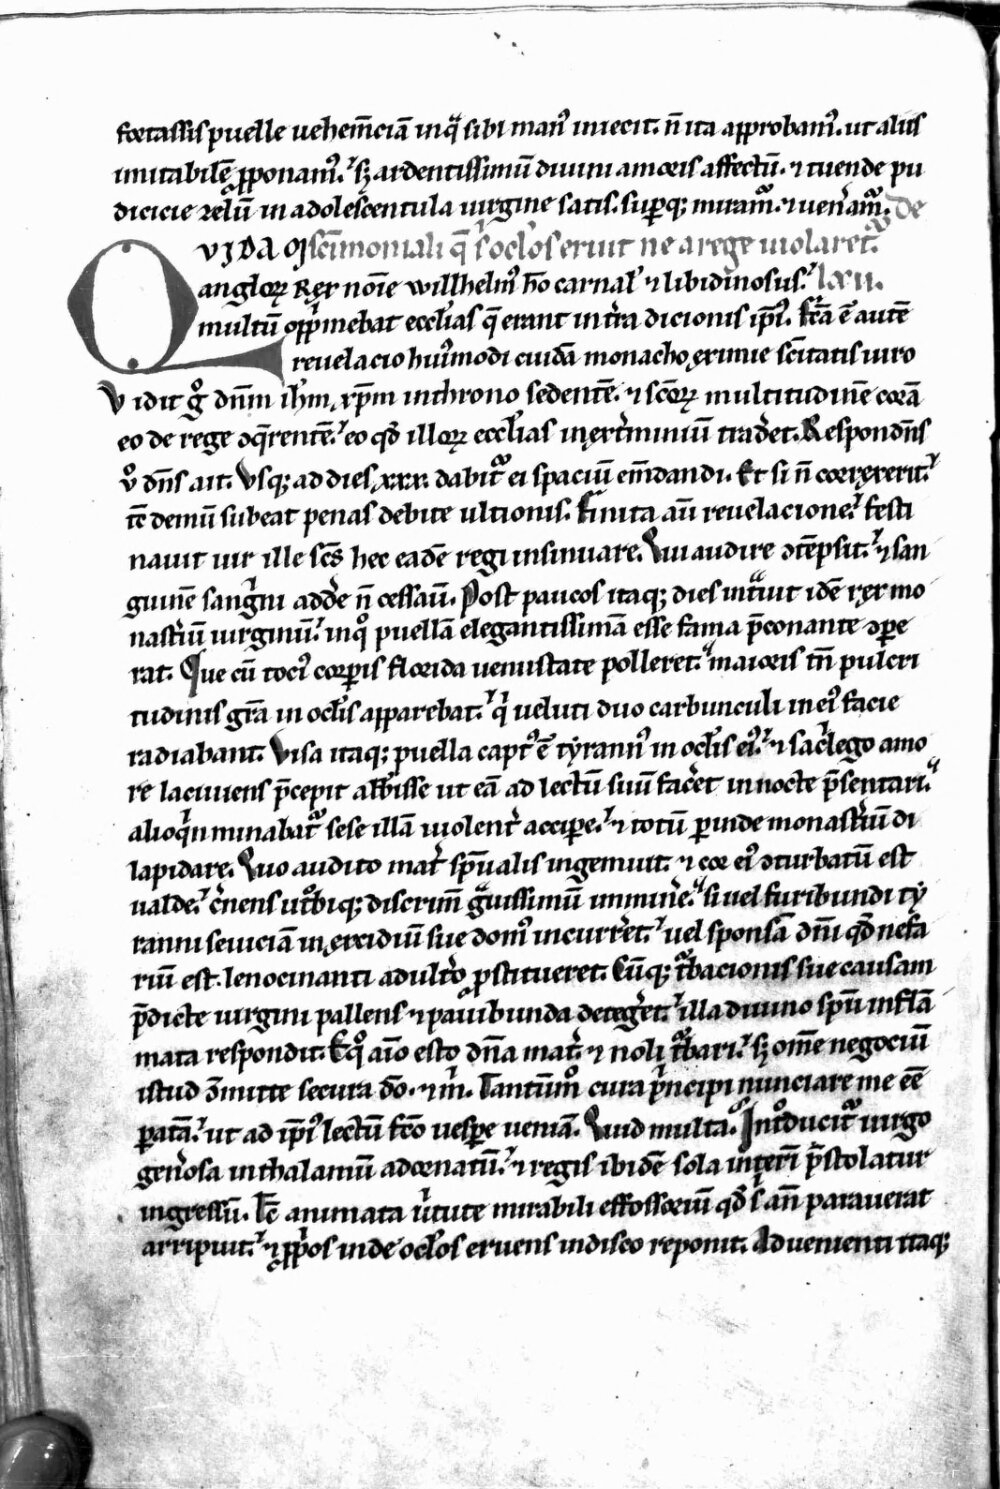 fortassis puelle uehem̅ciā inqͣ sibi manꝰ iniecit. n̅ ita approbamꝰ. ut aliis
imitabilē ꝓponamꝰ. sꝫ ardentissimū diuini amoris affectū. ⁊ tuende pu
dicicie zelū in adolescentula uirgine satis. suꝑqꝫ miramͬ. ⁊ uen̅amͬ. de
QVIDAM sc̅imoniali q̅ s̅ ocl̅os eruit ne a rege uiolaretͬ.
angloꝝ Rex no̅ie willhelmꝰ ho̅ carnal̅ ⁊ libidinosus. lxii.
multū opp̅mebat eccl̅ias q̅ erant intra dicionis ip̅iꝰ. fc̅a ē autē
reuelacio huiꝰmodi cuidā monacho, eximie sc̅itatis uiro
Vidit gͦ dn̅m ih̅m xp̅m inthrono sedentē. ⁊ sc̅oꝝ multitudinē corā
eo de rege ↄq̅rentē. eo qd̅ illoꝝ eccl̅ias in exterminiū traderet. Respondn̅s
uͦ dn̅s ait. Vsqꝫ ad dies xxx. dabitͬ ei spaciū em̅dandi. Et si n̅ correxerit.
tē demū subeat penas debite ultionis. Finita au̅ reuelacione. festi
nauit uir ille sc̅s hec eadē regi insinuare. Qui audire ↄtēpsit. ⁊ san
guinē sangͥni adde̅ n̅ cessau̅. Post paucos itaqꝫ dies intͣuit idē rex mo
nast̅iū uirginū. inqͦ puellā elegantissimā esse fama p̅conante ↄpe
rat. Que cū tociꝰ corꝑis florida uenustate polleret. maioris tn̅ pulcri
tudinis gr̅a in ocl̅is apparebat. qͥ ueluti duo carbunculi in eiꝰ facie
radiabant. Visa itaqꝫ puella captꝰ ē tyrannꝰ in ocl̅is eiꝰ. ⁊ sacͥlego amo
re laciuiens p̅cepit abb̅isse ut eā ad lectū suū fac̅et in nocte p̅sentari.
alioqͥn minabatͬ sese illā uiolent̅ acciꝑe. ⁊ totū ꝑinde monast̅iū di
lapidare. Quo audito mat̅ sp̅ualis ingemuit. ⁊ cor eiꝰ ↄturbatū est
ualde. c̅nens ut̅biqꝫ discrim̅ gͣuissimū immin̅e. si uel furibundi ty
ranni seuiciā in excidiū sue domꝰ incurr̅et. uel sponsā dn̅i qd̅ nefa
riū est. lenocinanti adult̅o ꝓstitueret. Cūqꝫ tͬbacionis sue causam
p̅dicte uirgini pallens ⁊ pauibunda deteg̅et. illa diuino sp̅u inflā
mata respondit. Eqͦ ai̅o esto dn̅a mat̅. ⁊ noli tͬbari. sꝫ om̅e negociū
istud ↄ̅mitte secura do̅. ⁊ m̅. Tantūmͦ cura pͥncipi nunciare me ēe
ꝑatā. ut ad ip̅iꝰ lectū fc̅o uesꝑe ueniā. Quid multa. Intͦducitͬ uirgo
gen̅osa inthalamū adornatū. ⁊ regis ibidē sola inter̅i p̅stolatur
ingressū. Tē animata uͥtute mirabili effossoriū qd̅ s̅ an̅ parauerat
arripuit. ⁊ ꝓpͥos inde ocl̅os eruens indisco reponit. Aduenienti itaqꝫ